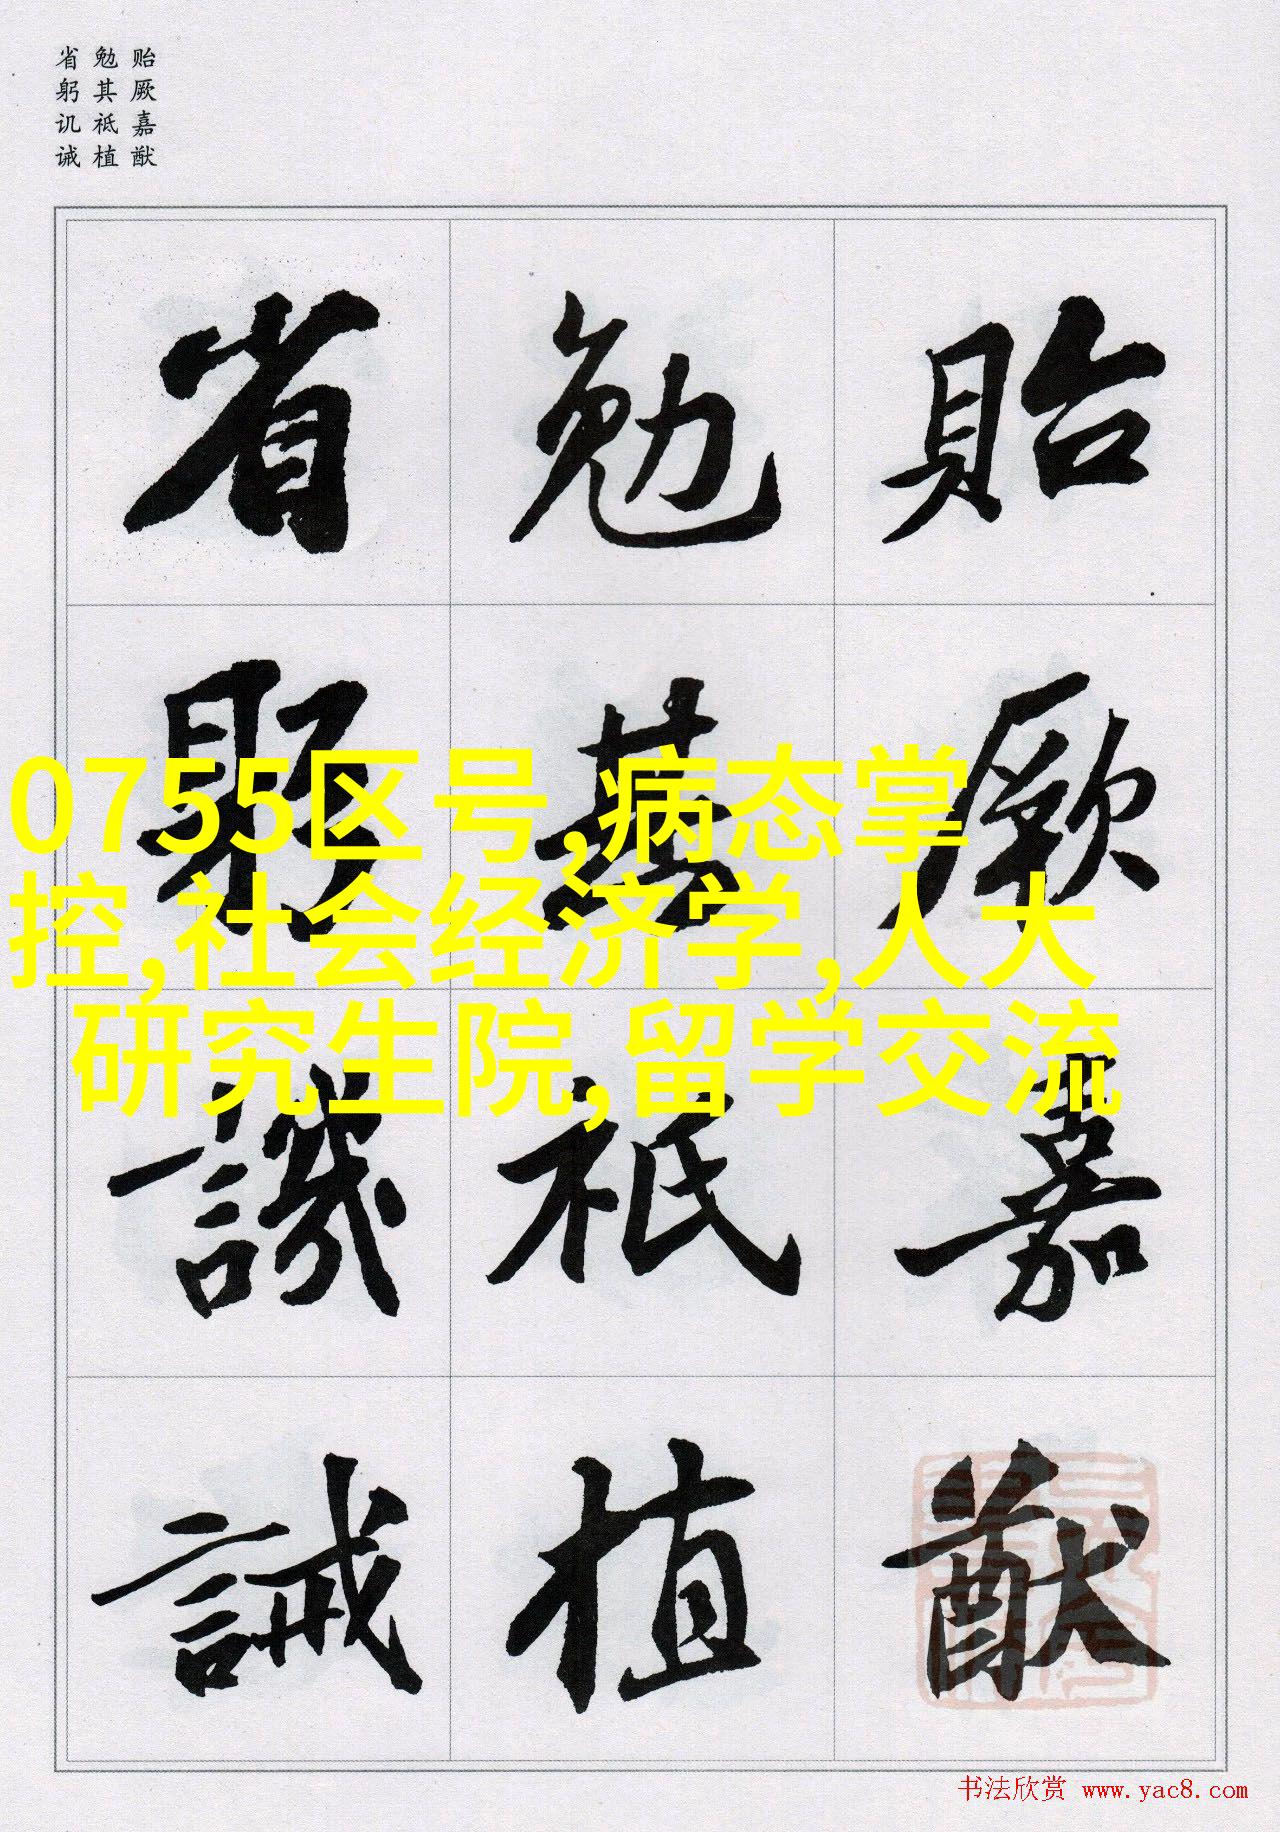 贻厥嘉猷
勉其祗植
省躬讥诫
貽厥嘉猷
勉其祗植
省躬譏誡
0755区号,病态掌
控,社会经济学,人大
研究生院,留学交流
书法欣赏 www.yac8.com